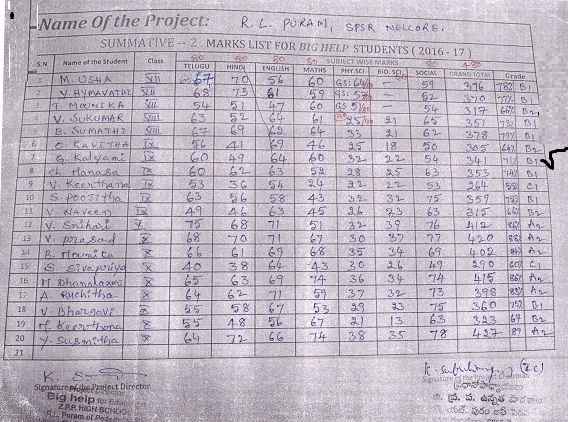 Name Of the Project: R. L. PURAM, SPSR NELLORE.
SUMMATIVE -- 2. MARKS LIST FOR BIG HELP STUDENTS ( 2016 - 17 )
80 80 80 80 80 480
SUBJECT WISE MARKS
S.N Name of the Student Class TELUGU HINDI ENGLISH MATHS PHY.SCI BIO. SCI SOCIAL GRAND TOTAL Grade
1 M. USHA VII 67 70 56 60 GS: 64 — 59 376 78% B1
2 V. HYMAVATHI VII 68 73 61 59 GS: 57 — 52 370 77% B1
3 T. MOUNIKA VII 54 51 47 60 GS 51 — 54 317 66% B2
4 V. SUKUMAR VIII 63 52 64 61 25 21 65 351 73% B1
5 B. SUMATHI VIII 67 69 62 64 33 21 62 378 79% B1
6 O. KAVITHA IX 56 41 69 46 25 18 50 305 64% B2
7 G. Kalyani IX 60 49 64 60 32 22 54 341 71% B1
8 Ch. Manasa IX 60 62 63 52 28 25 63 353 74% B1
9 V. Keerthana IX 53 36 54 24 22 22 53 264 55% C1
10 S. Poojitha IX 63 56 58 43 32 32 75 359 75% B1
11 V. Naveen IX 49 46 63 45 26 23 63 315 66% B2
12 V. Srihari X 75 68 71 51 32 39 76 412 86% A2
13 V. Prasad X 68 70 71 67 30 37 77 420 88% A2
14 B. Mounica X 66 61 69 68 35 34 69 402 84% A2
15 S. Sivapriya X 40 38 64 43 30 26 49 290 60% C1
16 M. Dhanalaxmi X 65 63 69 74 36 34 74 415 86% A2
17 A. Ruchitha X 64 62 71 59 37 32 73 398 83% A2
18 V. Bhargavi X 55 58 67 53 29 23 75 360 75% B1
19 M. Keerthana X 55 48 56 67 21 13 63 323 67 B2
20 Y. Susmitha X 64 72 66 74 38 35 78 427 89 A2
21
Signature of the Project Director
Big help for Education
Z.P.P. HIGH SCHOOL
Signature of the Chairman
ప్రధానోపాధ్యాయులు